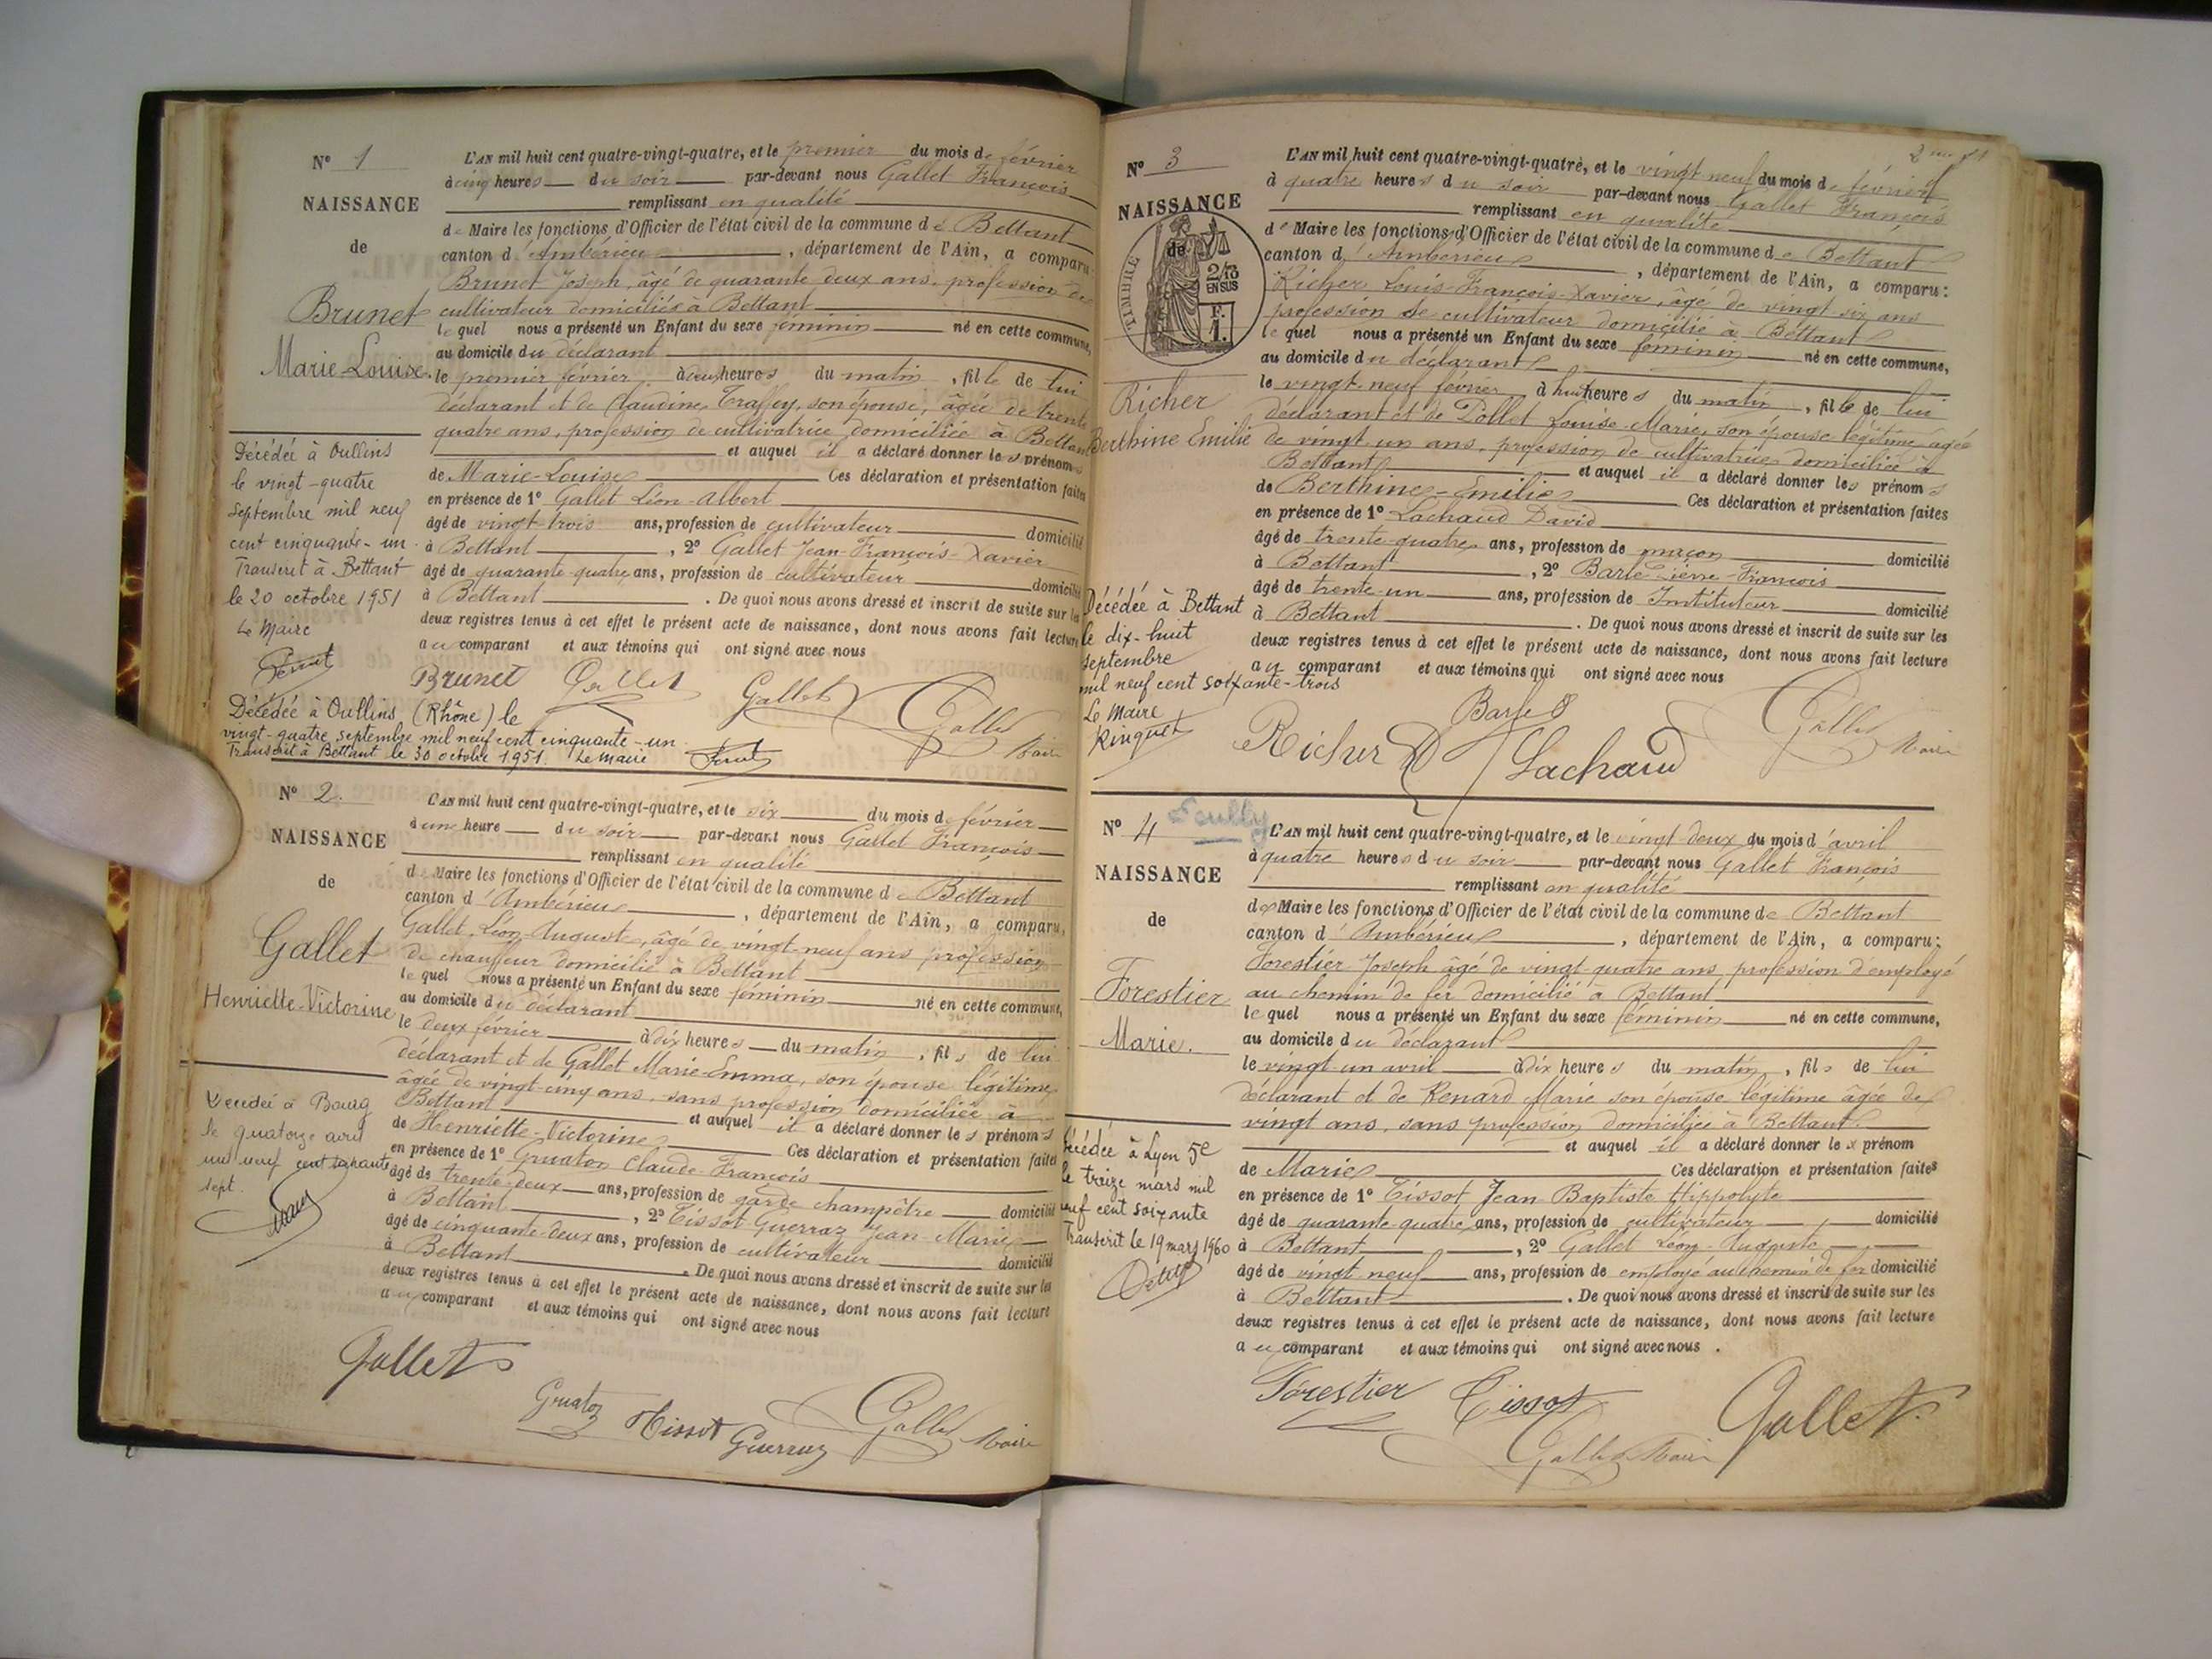 N° 1
NAISSANCE
de
Brunet
Marie-Louise.
Décédée à Oullins
le vingt-quatre
septembre mil neuf
cent cinquante-un
Transcrit à Bettant
le 20 octobre 1951
Le Maire
L'AN mil huit cent quatre-vingt-quatre, et le premier du mois de février
à cinq heures du soir par-devant nous Gallet François
remplissant en qualité
de Maire les fonctions d'Officier de l'état civil de la commune de Bettant
canton d'Ambérieu, département de l'Ain, a comparu
Brunet Joseph, âgé de quarante deux ans, profession de
cultivateur domiciliés à Bettant
lequel nous a présenté un Enfant du sexe féminin né en cette commune,
au domicile du déclarant
le premier février à deux heures du matin, fille de lui
déclarant et de Claudine Traffey, son épouse, âgée de trente
quatre ans, profession de cultivatrice domiciliée à Bettant
et auquel il a déclaré donner les prénoms
de Marie-Louise Ces déclaration et présentation faites
en présence de 1° Gallet Léon-Albert
âgé de vingt-trois ans, profession de cultivateur domicilié
à Bettant, 2° Gallet Jean-François-Xavier
âgé de quarante-quatre ans, profession de cultivateur domicilié
à Bettant. De quoi nous avons dressé et inscrit de suite sur les
deux registres tenus à cet effet le présent acte de naissance, dont nous avons fait lecture
au comparant et aux témoins qui ont signé avec nous
Brunet Gallet Gallet Gallet Maire
Décédée à Oullins (Rhône) le
vingt-quatre septembre mil neuf cent cinquante-un
Transcrit à Bettant le 30 octobre 1951. Le Maire
N° 2.
NAISSANCE
de
Gallet
Henriette-Victorine
Décédée à Bourg
le quatorze avril
mil neuf cent soixante
sept.
L'AN mil huit cent quatre-vingt-quatre, et le six du mois de février
à une heure du soir par-devant nous Gallet François
remplissant en qualité
de Maire les fonctions d'Officier de l'état civil de la commune de Bettant
canton d'Ambérieu, département de l'Ain, a comparu,
Gallet Léon-Auguste, âgé de vingt-neuf ans profession
de chauffeur domicilié à Bettant
lequel nous a présenté un Enfant du sexe féminin né en cette commune,
au domicile du déclarant
le deux février à dix heures du matin, fils de lui
déclarant et de Gallet Marie-Emma, son épouse légitime
âgée de vingt-cinq ans, sans profession domiciliée à
Bettant et auquel il a déclaré donner les prénoms
de Henriette-Victorine Ces déclaration et présentation faites
en présence de 1° Gruaton Claude-François
âgé de trente-deux ans, profession de garde champêtre domicilié
à Bettant, 2° Tissot Guerraz Jean-Marie
âgé de cinquante-deux ans, profession de cultivateur domicilié
à Bettant. De quoi nous avons dressé et inscrit de suite sur les
deux registres tenus à cet effet le présent acte de naissance, dont nous avons fait lecture
au comparant et aux témoins qui ont signé avec nous
Gallet
Gruaton Tissot Guerraz Gallet Maire
N° 3
NAISSANCE
de
TIMBRE
2/10
EN SUS
F.
1.
Richer
Berthine Emilie
Décédée à Bettant
le dix-huit
septembre
mil neuf cent soixante-trois
Le Maire
Ringuet
L'AN mil huit cent quatre-vingt-quatre, et le vingt neuf du mois de février
à quatre heures du soir par-devant nous Gallet François
remplissant en qualité
de Maire les fonctions d'Officier de l'état civil de la commune de Bettant
canton d'Ambérieu, département de l'Ain, a comparu:
Richer Louis-François-Xavier, âgé de vingt six ans
profession de cultivateur domicilié à Bettant
lequel nous a présenté un Enfant du sexe féminin né en cette commune,
au domicile du déclarant
le vingt-neuf février à huit heures du matin, fille de lui
déclarant et de Dollet Louise-Marie, son épouse légitime âgée
de vingt un ans, profession de cultivatrice domiciliée à
Bettant et auquel il a déclaré donner les prénoms
de Berthine-Emilie Ces déclaration et présentation faites
en présence de 1° Lachaud David
âgé de trente-quatre ans, profession de maçon domicilié
à Bettant, 2° Barle François
âgé de trente-un ans, profession de Instituteur domicilié
à Bettant. De quoi nous avons dressé et inscrit de suite sur les
deux registres tenus à cet effet le présent acte de naissance, dont nous avons fait lecture
au comparant et aux témoins qui ont signé avec nous
Richer Barle Lachaud Gallet Maire
N° 4
NAISSANCE
de
Forestier
Marie.
Décédée à Lyon 5e
le treize mars mil
neuf cent soixante
Transcrit le 19 mars 1960
L'AN mil huit cent quatre-vingt-quatre, et le vingt deux du mois d'avril
à quatre heures du soir par-devant nous Gallet François
remplissant en qualité
de Maire les fonctions d'Officier de l'état civil de la commune de Bettant
canton d'Ambérieu, département de l'Ain, a comparu:
Forestier Joseph âgé de vingt-quatre ans, profession d'employé
au chemin de fer domicilié à Bettant
lequel nous a présenté un Enfant du sexe féminin né en cette commune,
au domicile du déclarant
le vingt-un avril à dix heures du matin, fils de lui
déclarant et de Renard Marie son épouse légitime âgée de
vingt ans, sans profession domiciliée à Bettant.
et auquel il a déclaré donner le prénom
de Marie Ces déclaration et présentation faites
en présence de 1° Tissot Jean-Baptiste Hippolyte
âgé de quarante-quatre ans, profession de cultivateur domicilié
à Bettant, 2° Gallet Léon-Auguste
âgé de vingt neuf ans, profession de employé au chemin de fer domicilié
à Bettant. De quoi nous avons dressé et inscrit de suite sur les
deux registres tenus à cet effet le présent acte de naissance, dont nous avons fait lecture
au comparant et aux témoins qui ont signé avec nous.
Forestier Tissot Gallet
Gallet Maire